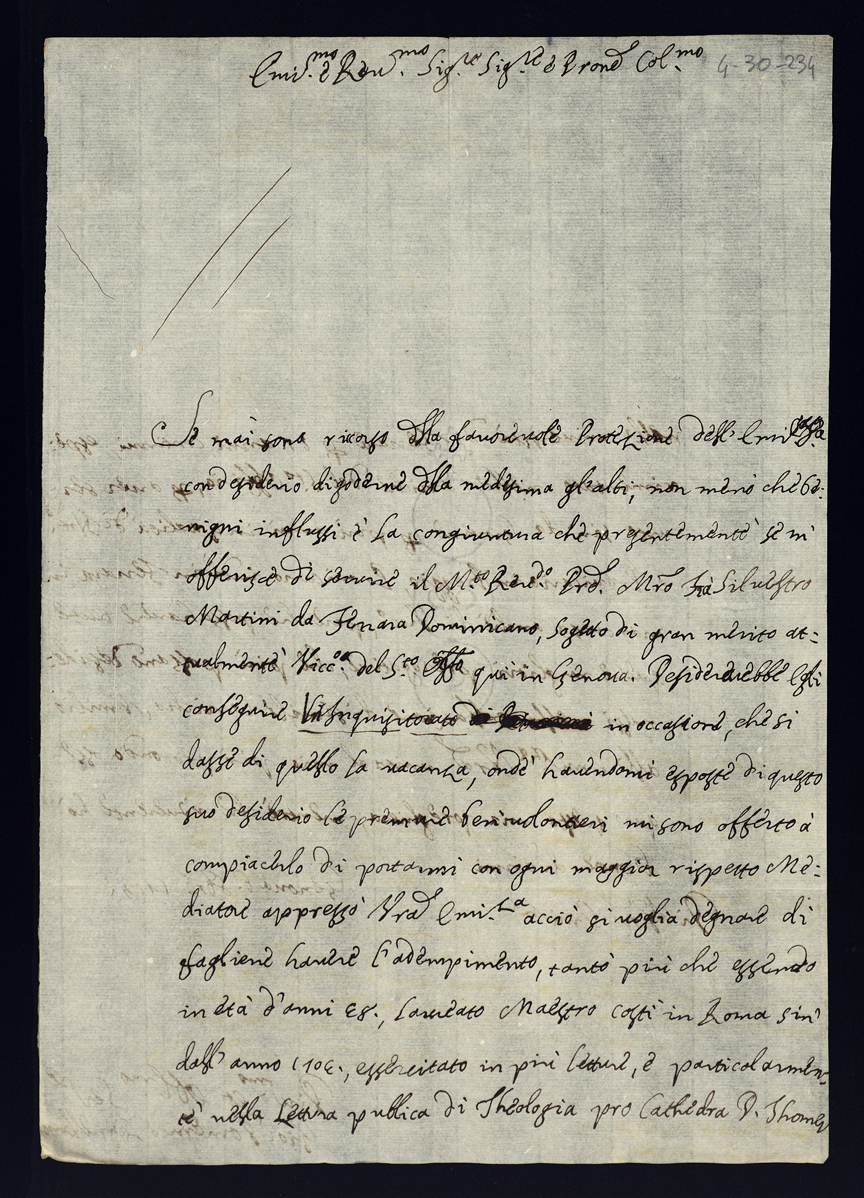 Emi.mo e Reu.mo Sig.re Sig.re e Prone Col.mo 4-30-234
Se mai sono ricorso alla fauoreuole Protezione dell'
con desiderio di goderne della medesima gl'alti, non meno che be:
nigni influssi è la congiuntura che presentemente se mi
offerisce di seruire il M.to Reu.do Pred. Mro Frà Siluestro
Martini da Ferrara Dominicano, sogetto di gran merito at:
tualmente Vicc.o del S.to Offo quì in Genoua. Desidererebbe Egli
conseguire Un Inquisitorato di in occasione, che si
dasse di quello la uacanza, onde hauendomi esposte di questo
suo desiderio le premure ben uolontieri mi sono offerto à
compiacerlo di portarmi con ogni maggior rispetto Me:
diatore appresso Vra Emi.za acciò si uoglia degnare di
fagliene hauere l'adempimento, tanto più che essendo
in età d'anni 48., laureato Maestro costì in Roma sin'
dall'anno, essercitato in più letture, e particolarmen:
te nella Lettura publica di Theologia pro Cathedra D. Thomę